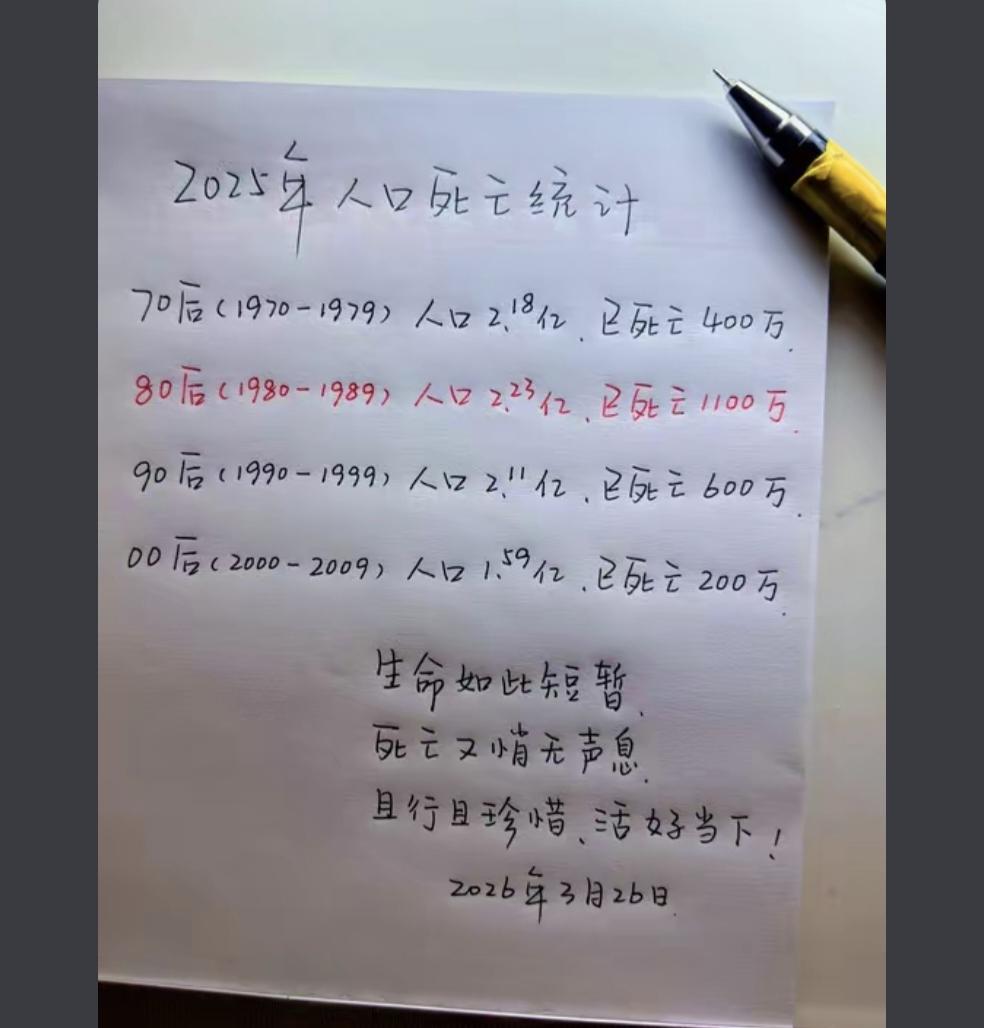 2025年人口死亡统计
70后(1970-1979)人口2.18亿、已死亡400万.
80后(1980-1989)人口2.23亿、已死亡1100万.
90后(1990-1999)人口2.11亿、已死亡600万.
00后(2000-2009)人口1.59亿、已死亡200万.
生命如此短暂、
死亡又悄无声息、
且行且珍惜、活好当下!
2026年3月26日.